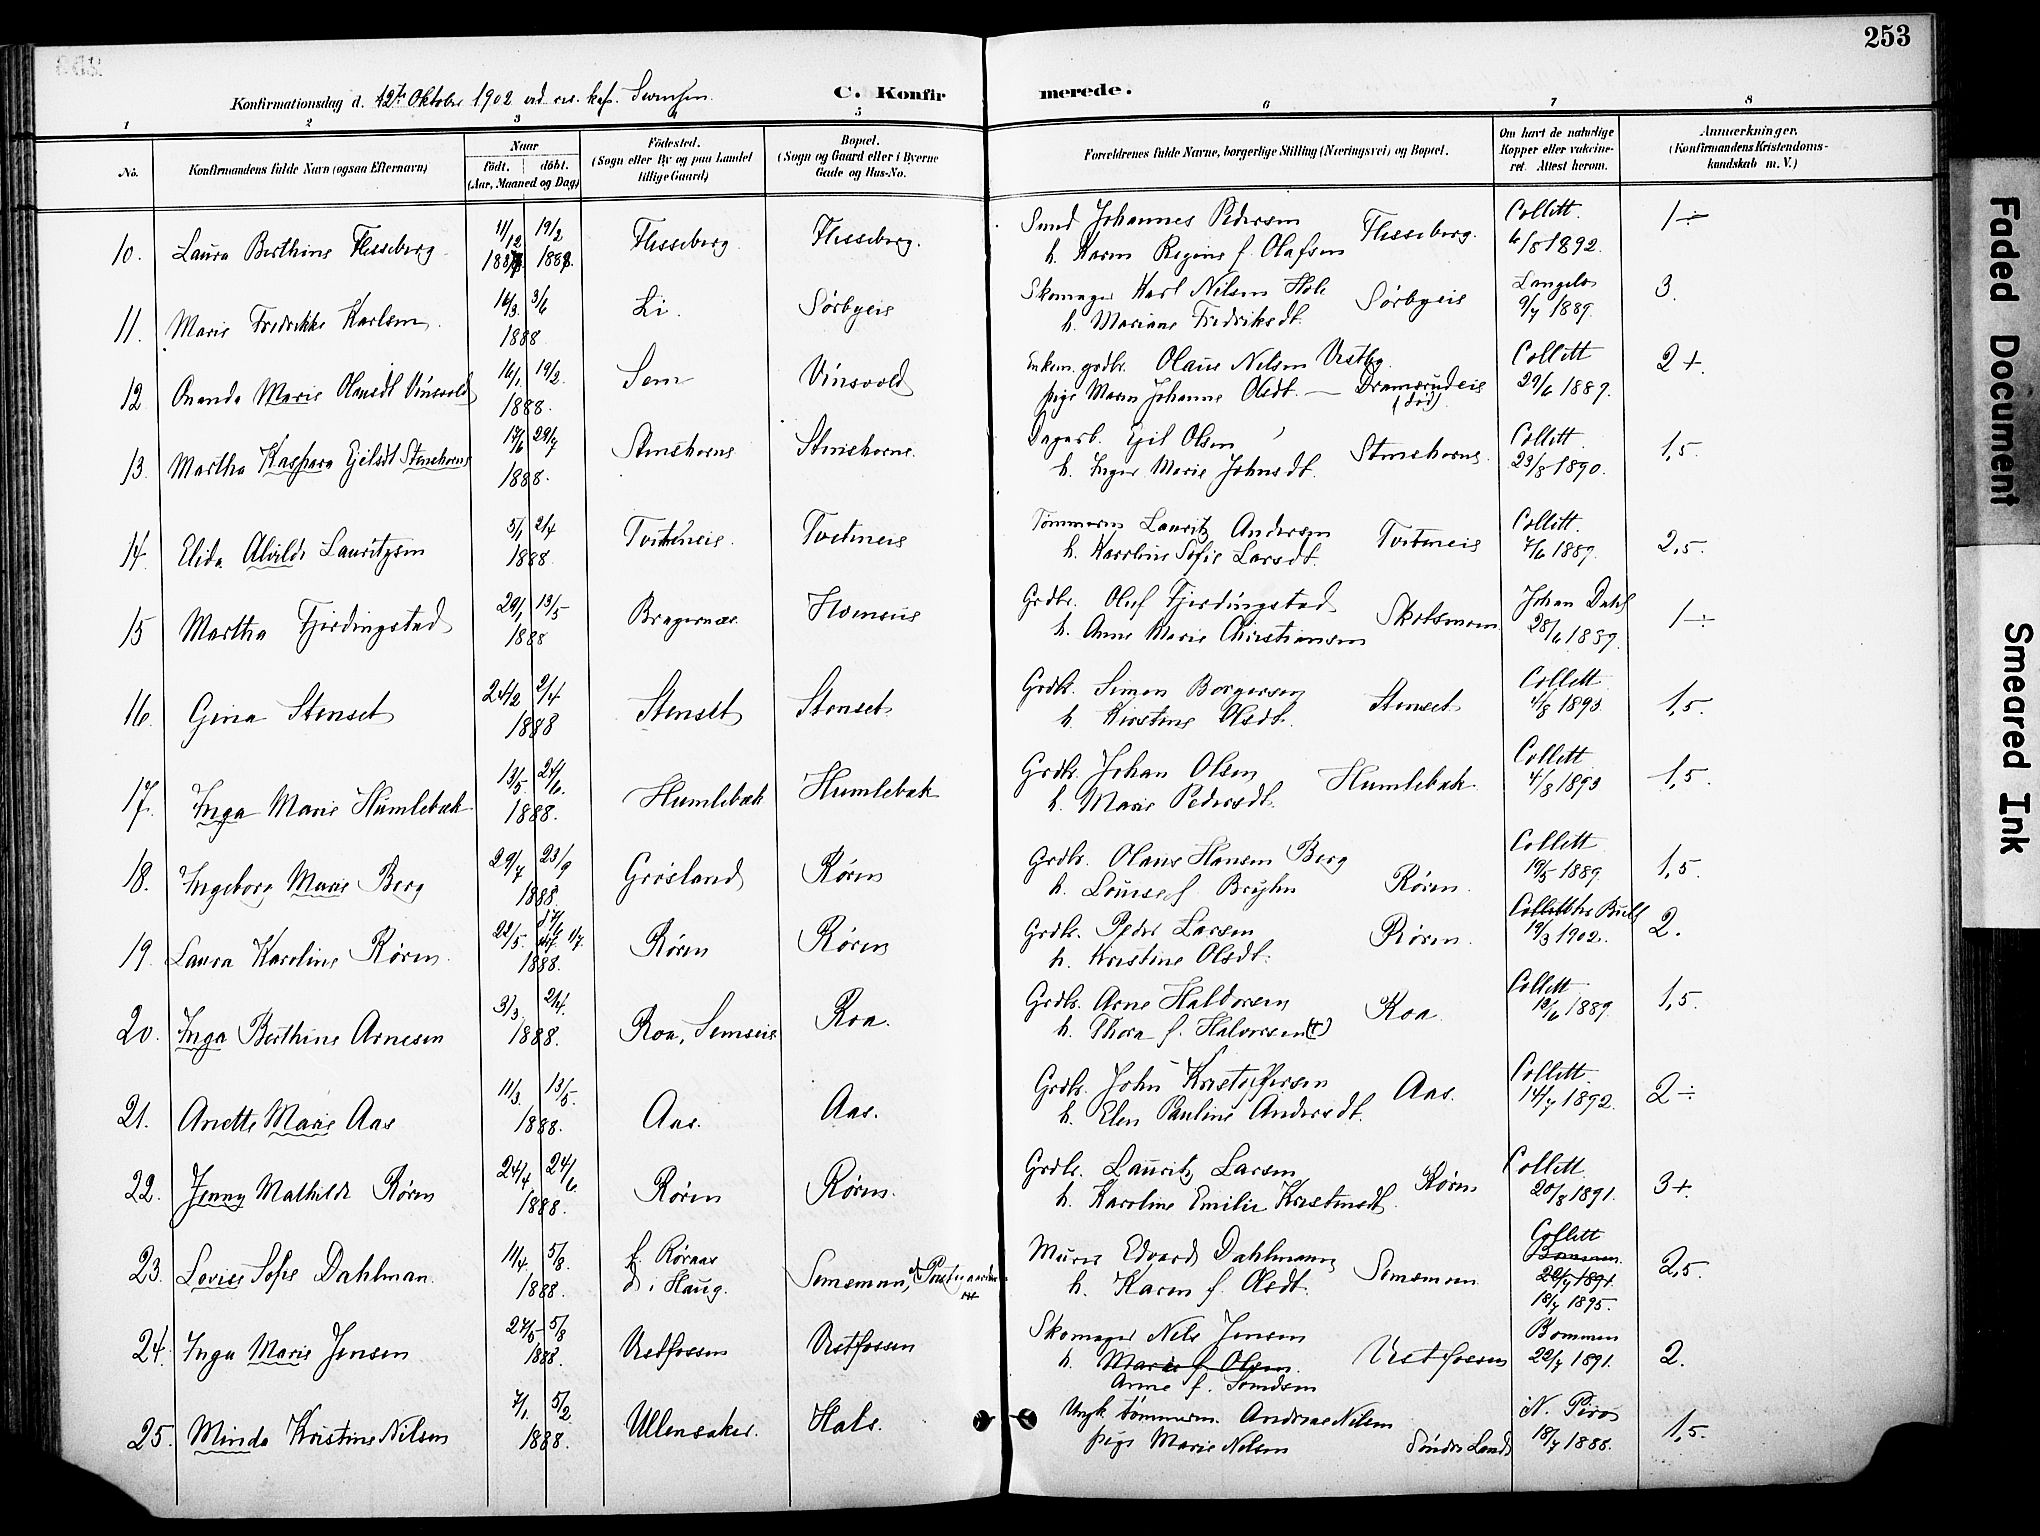 253
Konfirmationsdag d. 12te Oktober 1902 ved res. kap. C. Konfirmerede.
1 2 3 4 5 6 7 8
No.
Konfirmandens fulde Navn (ogsaa Efternavn)
Naar
födt. döbt.
(Aar, Maaned og Dag)
Födested.
(Sogn eller By og paa Landet
tillige Gaard)
Bopæl.
(Sogn og Gaard eller i Byerne
Gade og Hus-No.
Forældrenes fulde Navne, borgerlige Stilling (Næringsvei) og Bopæl.
Om havt de naturlige
Kopper eller vakcine-
ret. Attest herom.
Anmærkninger.
(Konfirmandens Kristendoms-
kundskab m. V.)
10. Laura Berthine Flesseberg 11/12 19/2 1888. Flesseberg. Flesseberg. Smed Johannes Pedersen Flesseberg. Collett. 1÷
h. Karen Regine f. Olafsen 6/8 1892.
11. Marie Fredrikke Karlsen. 16/3. 3/6 1888 Li. Sørbyeie Skomager Karl Nilsen Hole Sørbyeie Langelo 3.
h. Mariane Fredriksdt. 9/7 1889.
12 Ananda Marie Olausdt Vinsvold 16/1. 19/2. 1888. Sem Vinsvold Enkem. grdbr. Olaus Nilsen Vestby. Collett 2+.
pige Maren Johanne Olsdt. — Dramsrudeie (død) 29/6 1889.
13. Martha Kaspara Ejelsdt Stenshorne 17/6 29/7 1888. Stenshorne Stenshorne. Dagarb. Ejel Olsen Stenshorne. Collett. 1,5.
h. Inger Marie Johnsdt. 23/8 1890.
14. Elida Alvilde Lauritzsen 5/1 2/4 1888. Tveteneie. Tveteneie Tømmerm. Lauritz Andersen Tveteneie Collett. 2,5.
h. Karoline Sofie Larsdt. 7/6 1889.
15 Martha Fjerdingstad 29/1 13/5 1888 Bragernæs. Grdbr. Oluf Fjerdingstad Skotsmoen Johan Dahl 1÷
h. Anne Marie Christiansen 28/6 1889.
16. Gina Stenset 24/2 2/4 1888 Stenset Stenset Grdbr. Simen Borgersen Stenset Collett 1,5.
h. Kirstine Olsdt. 4/8 1893.
17. Inga Marie Humlebæk 13/5. 24/6. 1888. Humlebæk Humlebæk Grdbr. Johan Olsen Humlebæk Collett 1,5.
h. Marie Pedersdt. 4/8 1893
18. Ingeborg Marie Berg 29/7 23/9 1888. Grøsland Røren Grdbr. Olaus Hansen Berg Røren. Collett 1,5.
h. Louise f. Bryhn 19/5 1889.
19. Laura Karoline Røren. 22/5. 17/6 1/7. 1888. Røren Røren Grdbr. Peder Larsen Røren. Bull 2.
h. Kristine Olsdt. 19/3 1902.
20. Inga Berthine Arnesen 3/3. 2/4. 1888. Roa, Semseie Roa. Grdbr. Arne Haldorsen Roa Collett 1,5.
h. Thora f. Halvorsen (†) 12/6 1889.
21. Anette Marie Aas 11/3. 13/5. 1888. Aas. Aas. Grdbr. John Kristoffersen Aas. Collett. 2÷
h. Elen Pauline Andersdt. 14/7 1892.
22. Jenny Mathilde Røren 24/4. 24/6. 1888. Røren Røren. Grdbr. Lauritz Larsen Røren Collett 3+.
h. Karoline Emilie Kristensdt. 20/8 1891.
23. Lovise Sofie Dahlman. 11/4. 5/8. 1888. f. Røraas Semsmoen, Murer Edvard Dahlmann Semsmoen Collett 2,5.
d. i Haug. h. Karen f. Olsdt. Bommen 22/7 1891. 18/7 1895.
24. Inga Marie Jensen 27/5 5/8 1888. Vestfossen Vestfossen Skomager Nils Jensen Vestfossen Bommen 2.
h. Marie f. Olsen. 22/7 1891.
Anne f.
25. Minda Kristine Nilsen 7/1. 5/2. 1888. Ullensaker. Hals. Ungk. tømmerm. Andreas Nilsen Søndre Land 1,5.
pige Marie Nilsen 18/7 1888.
Faded Document
Smeared Ink